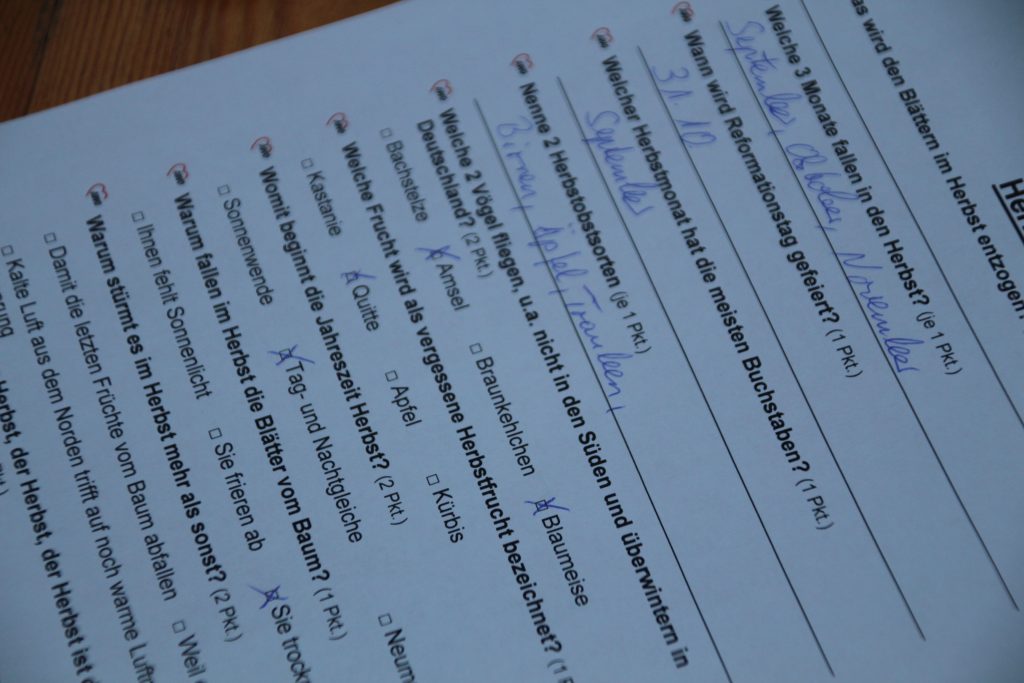 Her
as wird den Blättern im Herbst entzogen
Welche 3 Monate fallen in den Herbst? (je 1 Pkt.)
September, Oktober, November
Wann wird Reformationstag gefeiert? (1 Pkt.)
31.10
Welcher Herbstmonat hat die meisten Buchstaben? (1 Pkt.)
September
Nenne 2 Herbstobstsorten (je 1 Pkt.)
Birnen, Äpfel, Trauben
Welche 2 Vögel fliegen, u.a. nicht in den Süden und überwintern in
Deutschland? (2 Pkt.)
□ Bachstelze ☒ Amsel □ Braunkehlchen ☒ Blaumeise
Welche Frucht wird als vergessene Herbstfrucht bezeichnet? (1
□ Kastanie ☒ Quitte □ Apfel □ Kürbis
Womit beginnt die Jahreszeit Herbst? (2 Pkt.)
□ Sonnenwende ☒ Tag- und Nachtgleiche □ Neum
Warum fallen im Herbst die Blätter vom Baum? (1 Pkt.)
□ Ihnen fehlt Sonnenlicht □ Sie frieren ab ☒ Sie trock
Warum stürmt es im Herbst mehr als sonst? (2 Pkt.)
□ Damit die letzten Früchte vom Baum abfallen □ Weil
□ Kalte Luft aus dem Norden trifft auf noch warme Luft
Herbst, der Herbst, der Herbst ist